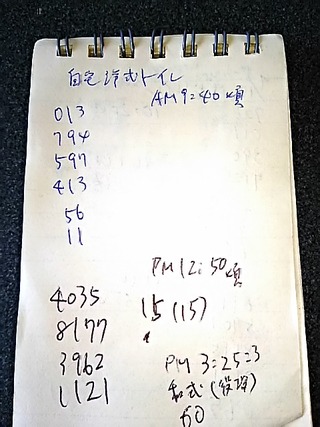 自宅洋式トイレ
AM9:40頃
013
794
597
413
56
11
PM12:50頃
4035
15(15)
8177
3962
PM 3:25=3
1121
和式(役場)
60